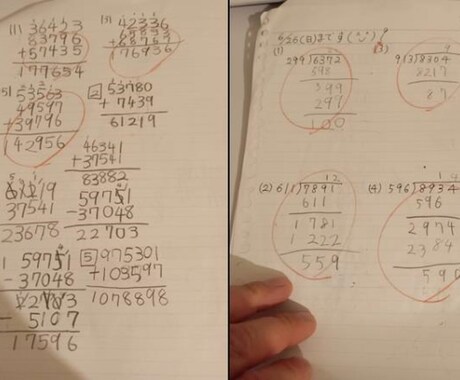 (1) 83796
+57435
(3) 42336
+68767
176936
(5) 53563
49597
+39796
142956
2 53780
+ 7439
61219
46341
+37541
83882
61219
37541
23678
59751
-37048
22703
5 975301
+103597
1078898
1 59751
- 37048
22703
- 5107
17596
(日)まです
(1)
299)6372
598
399
299
100
(3)
9
913)8304
8217
87
(2) 12
611)7891
611
1781
1222
559
(4) 14
596)8934
596
2974
2384
590